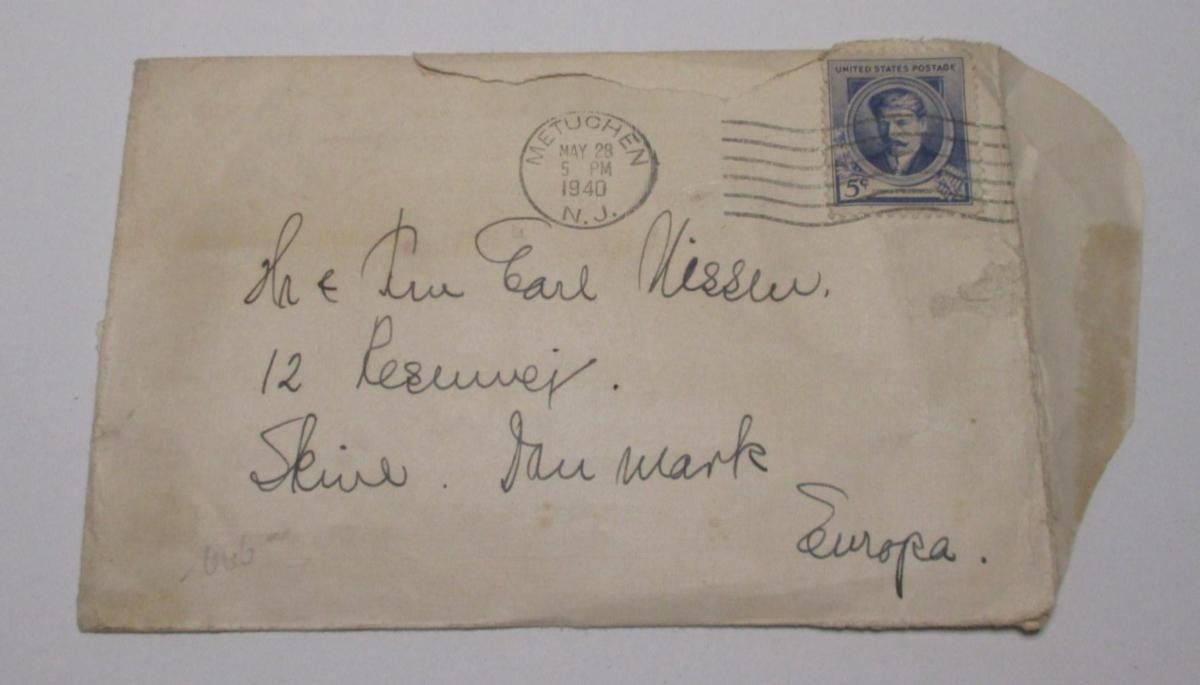 UNITED STATES POSTAGE
5¢
METUCHEN
MAY 28
5 PM
1940
N.J.
Hr & Fru Carl Nissen.
12 Resenvej.
Skive. Danmark
Europa.